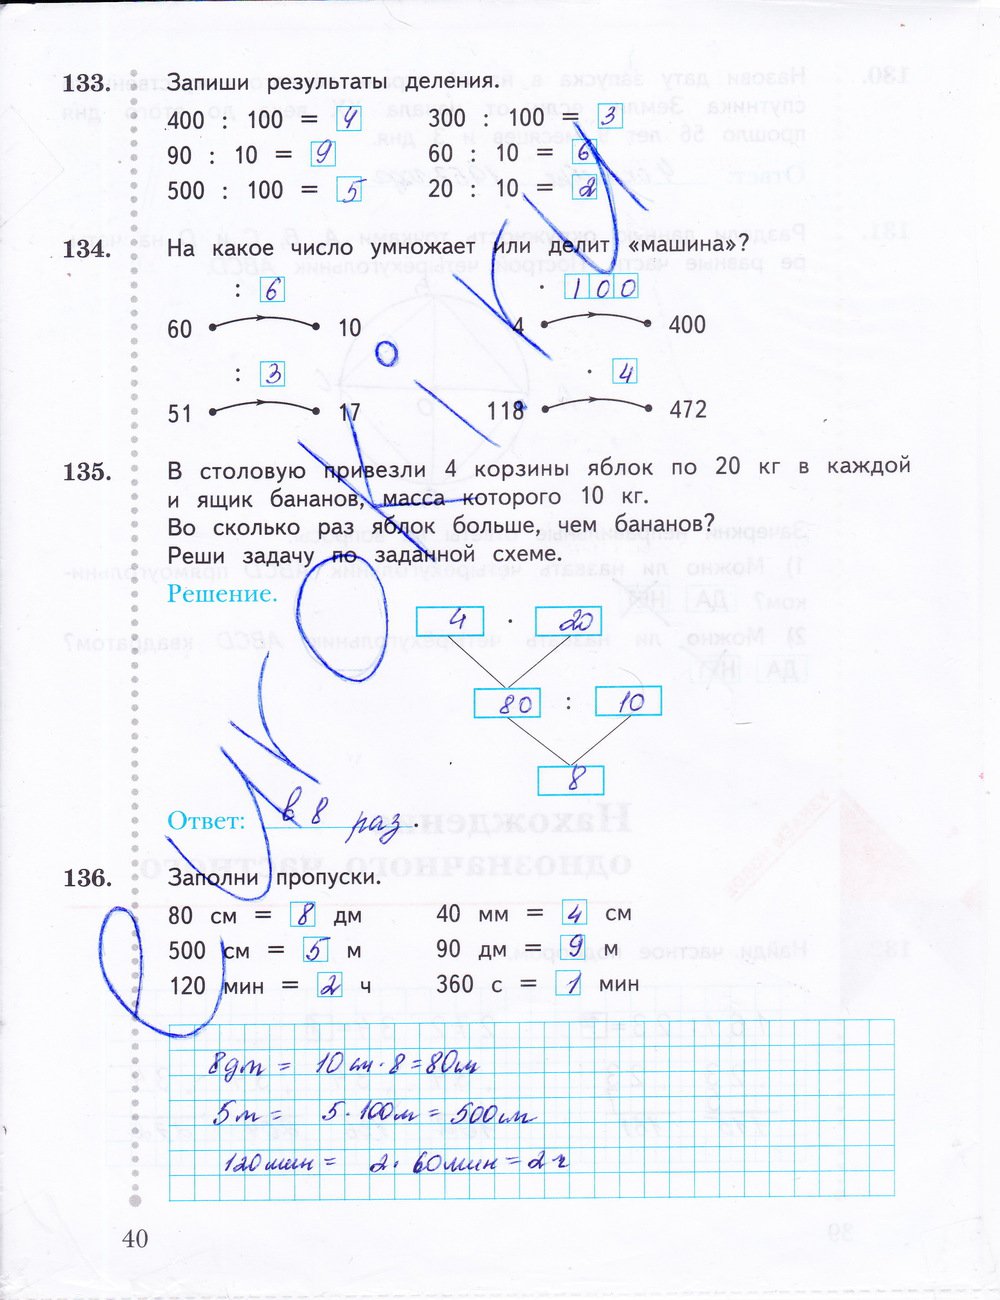 133. Запиши результаты деления.
400 : 100 = 4 300 : 100 = 3
90 : 10 = 9 60 : 10 = 6
500 : 100 = 5 20 : 10 = 2
134. На какое число умножает или делит «машина»?
: 6 · 100
60 10 4 400
: 3 · 4
51 17 118 472
135. В столовую привезли 4 корзины яблок по 20 кг в каждой
и ящик бананов, масса которого 10 кг.
Во сколько раз яблок больше, чем бананов?
Реши задачу по заданной схеме.
Решение.
4 · 20
80 : 10
8
Ответ: в 8 раз.
136. Заполни пропуски.
80 см = 8 дм 40 мм = 4 см
500 см = 5 м 90 дм = 9 м
120 мин = 2 ч 360 с = 1 мин
8дм = 10 см · 8 = 80см
5м = 5 · 100м = 500см
120мин = 2 · 60мин = 2ч
40